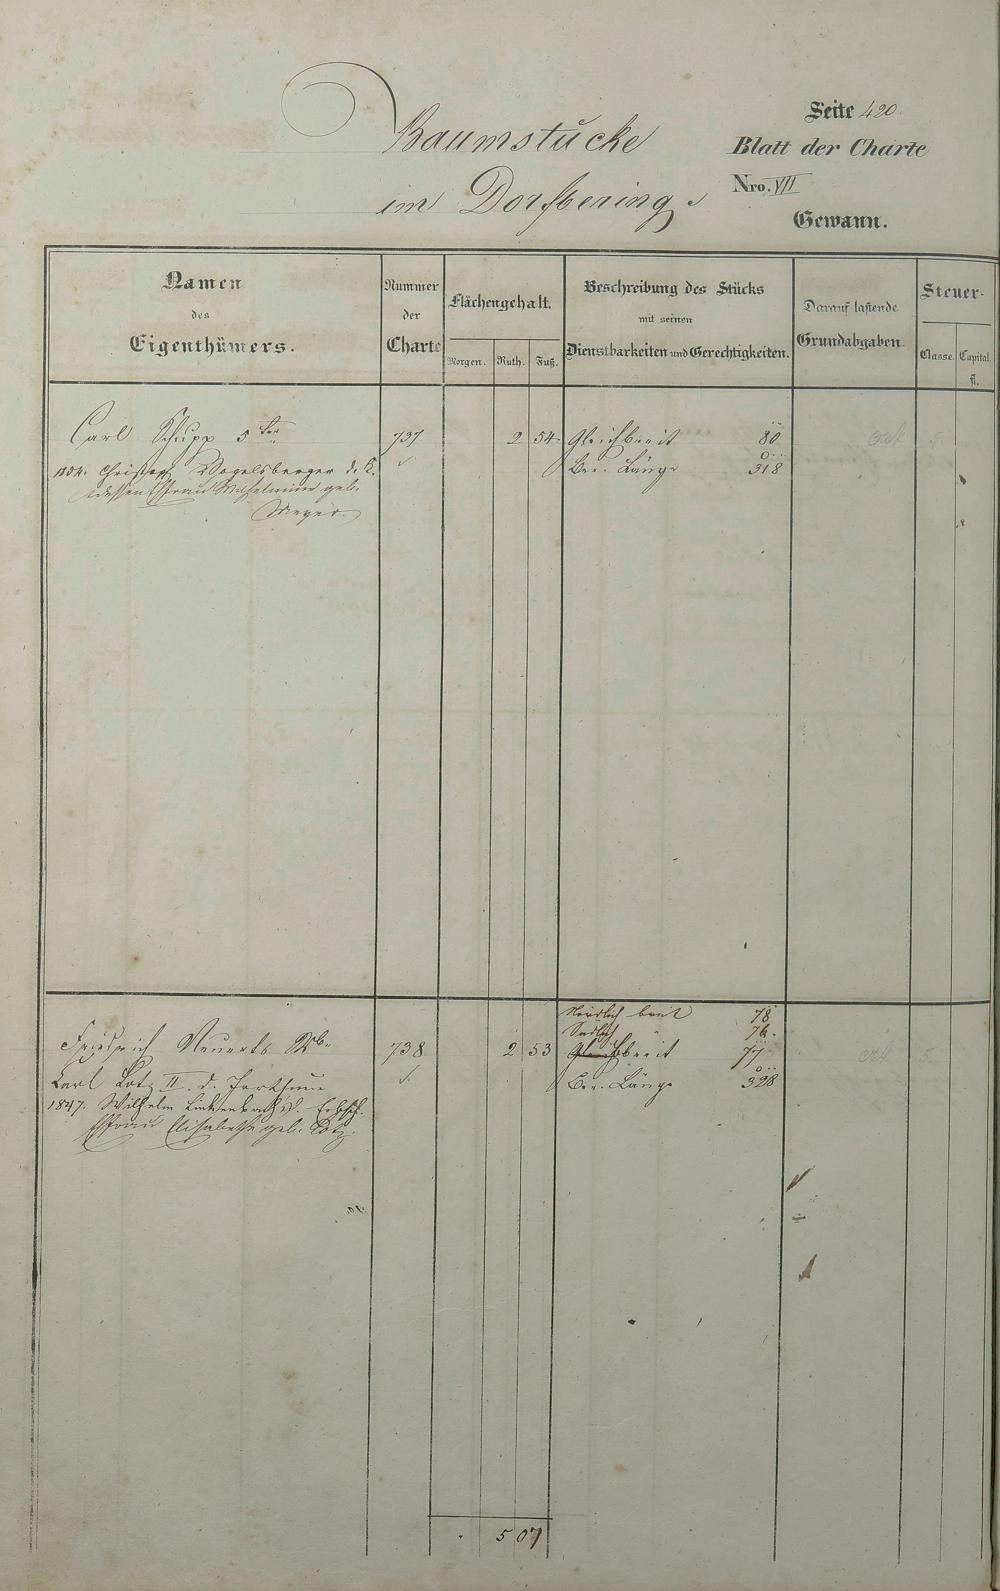 Baumstücke
im Dorfbering.
Seite 420.
Blatt der Charte
Nro. VII
Gewann.
Namen
des
Eigenthümers.
Nummer
der
Charte
Flächengehalt.
Morgen. Ruth. Fuß.
Beschreibung des Stücks
mit seinen
Dienstbarkeiten und Gerechtigkeiten.
Darauf lastende
Grundabgaben.
Steuer-
Classe. Capital.
fl.
Carl Schupp 5ter 737 2 54 Gleichbreit 80
Christoph Vogelsberger d. K. Ber. Länge 318
dessen Ehefrau Wilhelmine geb.
Meyer.
Nördlich breit 78
Südlich " 76
Friedrich Neuerts Wb. 738 2 53 Gleichbreit 77
Carl Lotz II. d. Ber. Länge 328
1847. Wilhelm
Ehefrau Elisabethe geb. Lotz.
5 07